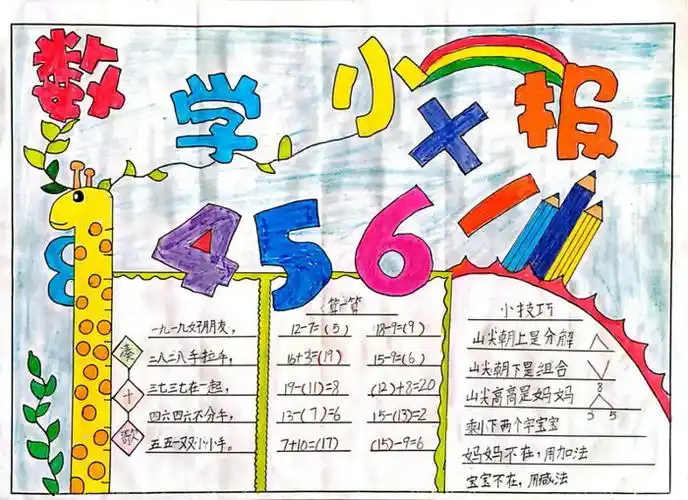 数学小报
8 4 5 6
凑十歌
一九一九好朋友，
二八二八手拉手，
三七三七在一起，
四六四六不分手，
五五一双小小手。
算一算
12-7=(5) 18-9=(9)
16+3=(19) 15-9=(6)
19-(11)=8 (12)+8=20
13-(7)=6 15-(13)=2
7+10=(17) (15)-9=6
小技巧
山尖朝上是分解
山尖朝下是组合
山尖高高是妈妈
8
3 5
剩下两个字宝宝
妈妈不在，用加法
宝宝不在，用减法